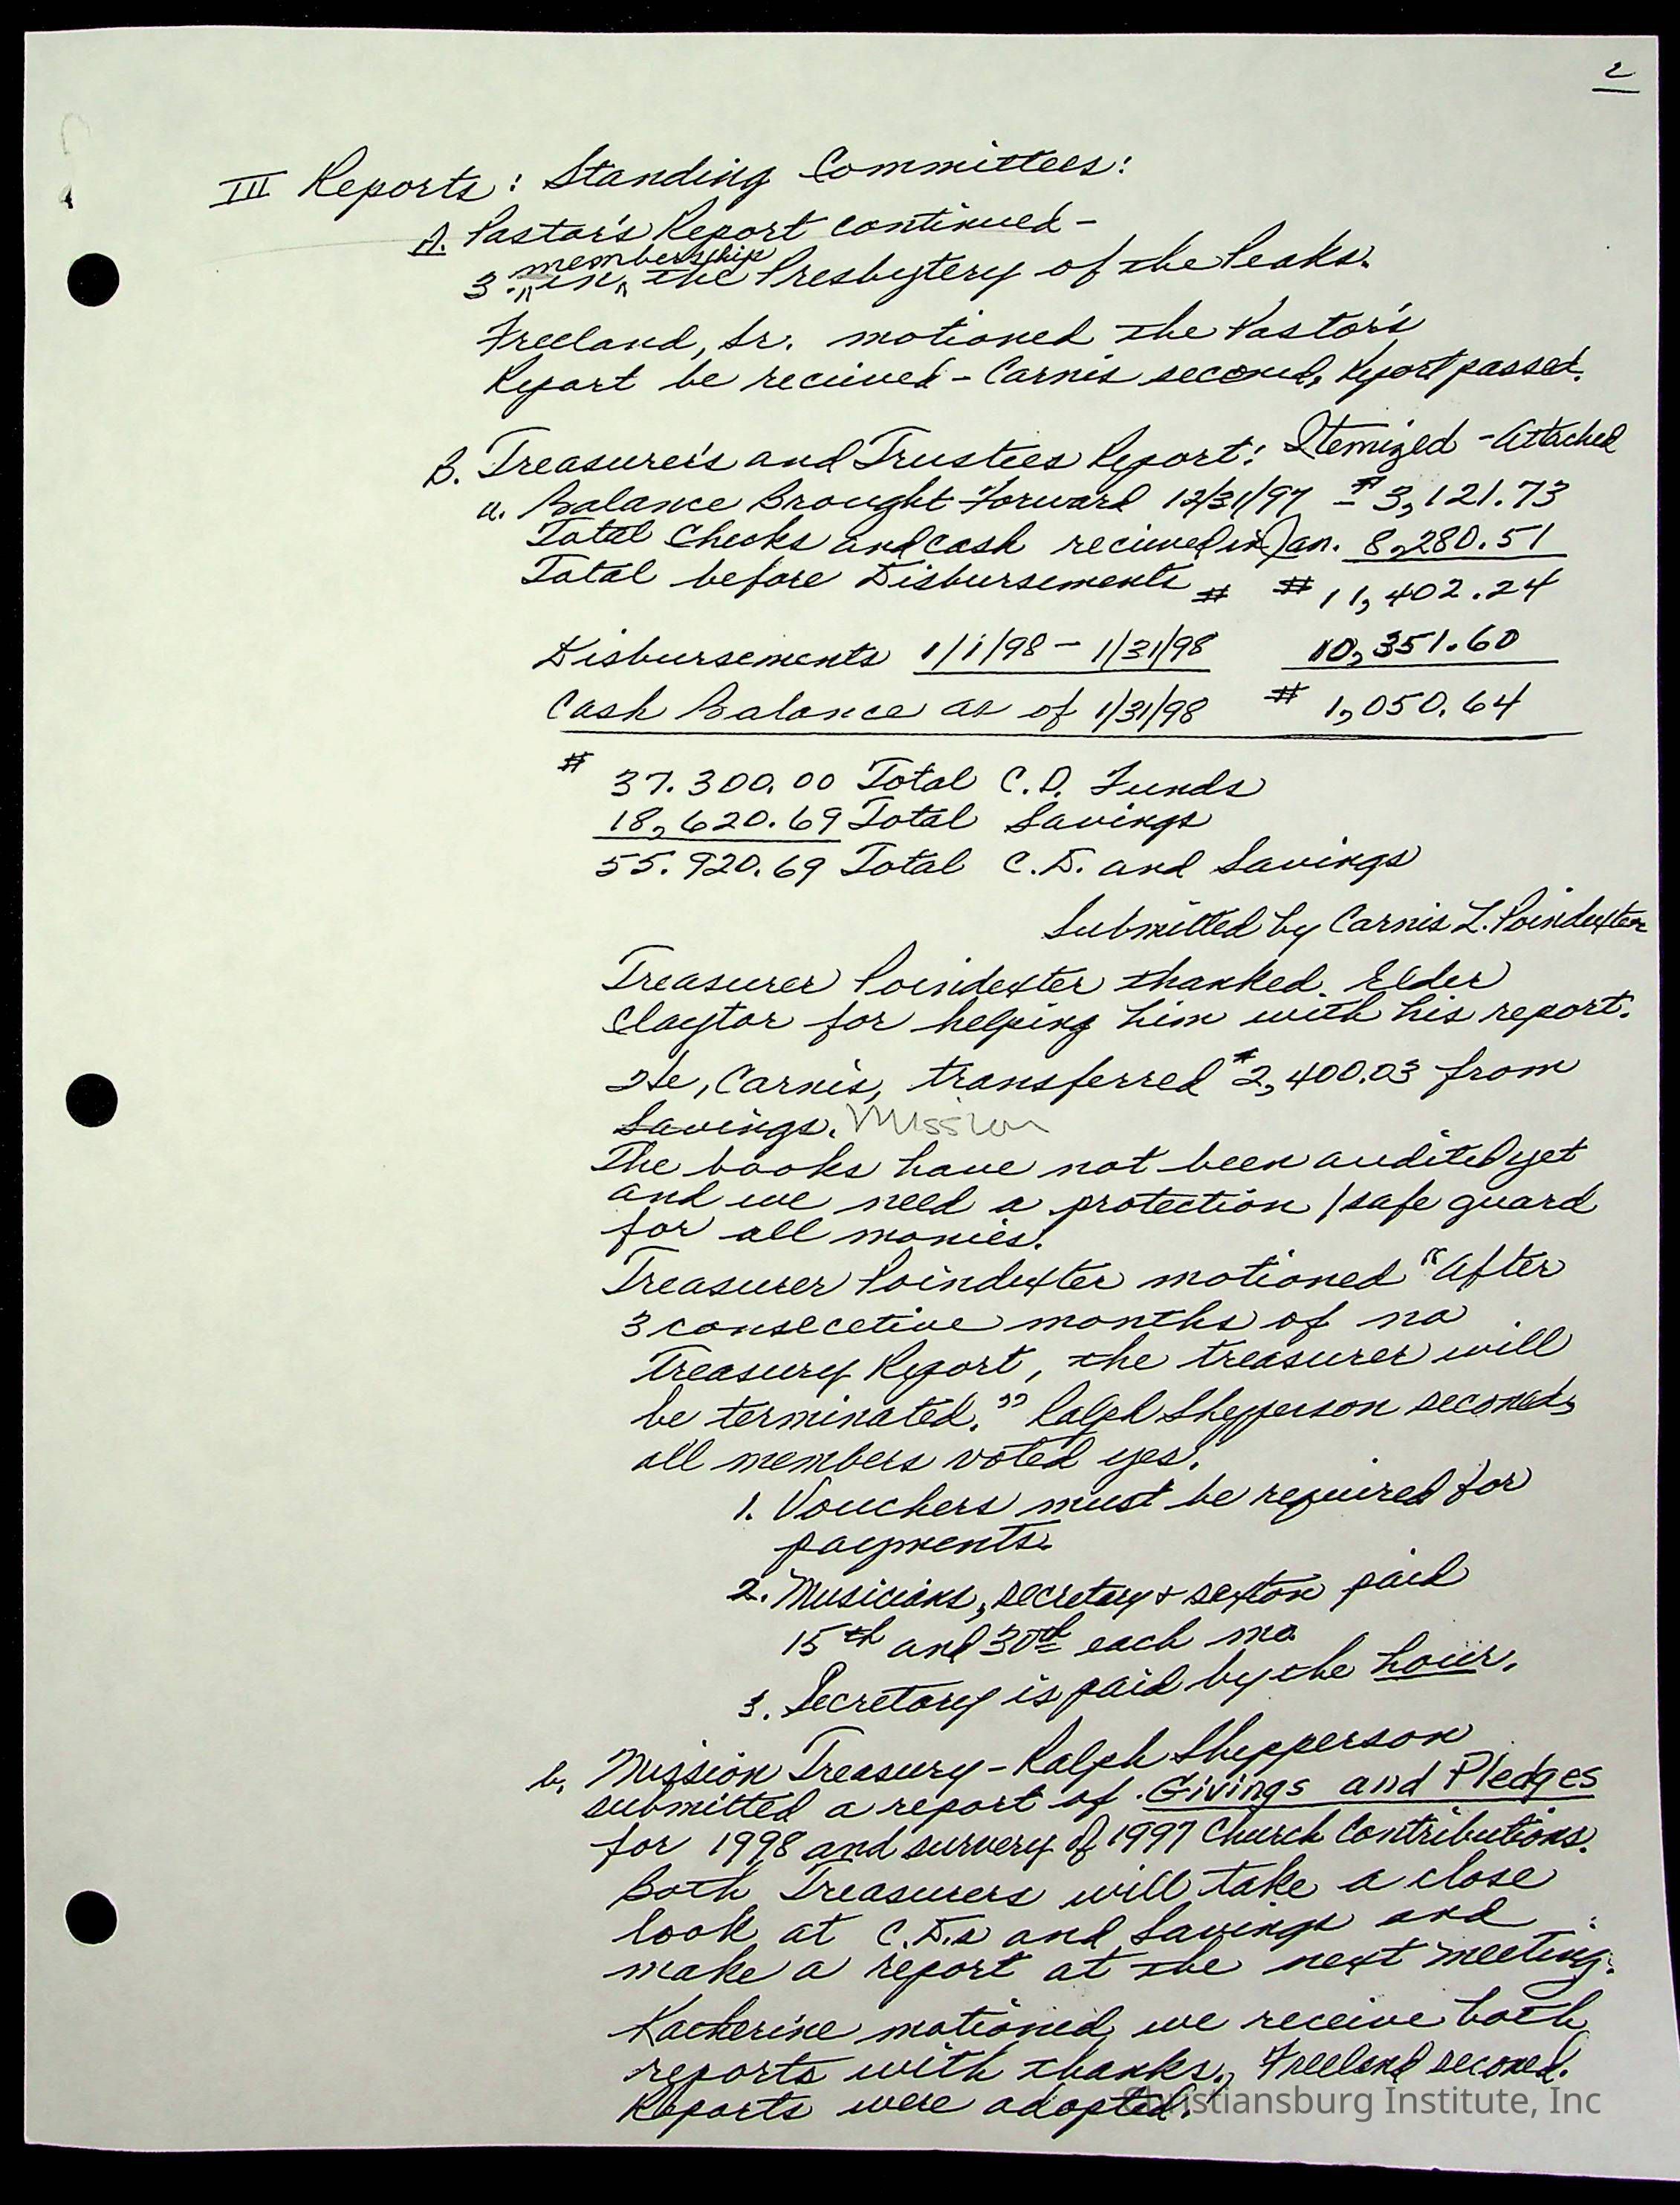 2
III Reports: Standing Committees:
A. Pastor's Report continued -
membership
3. in the Presbytery of the Peaks.
Freeland, Sr. motioned the Pastor's
Report be recieved - Carnis second, Report passed.
B. Treasurer's and Trustees Report: Itemized - Attached
a. Balance Brought Forward 12/31/97 - $3,121.73
Total Checks and cash recieved in Jan. 8,280.51
Total before Disbursements $ $ 11,402.24
Disbursements 1/1/98 - 1/31/98 10,351.60
Cash Balance as of 1/31/98 $ 1,050.64
$ 37.300.00 Total C.D. Funds
18,620.69 Total Savings
55.920.69 Total C.D. and Savings
Submitted by Carnis L. Poindexter
Treasurer Poindexter thanked Elder
Claytor for helping him with his report.
He, Carnis, transferred $2,400.03 from
Savings. Mission
The books have not been audited yet
and we need a protection / safe guard
for all monies.
Treasurer Poindexter motioned "After
3 consecetive months of no
Treasury Report, the treasurer will
be terminated." Ralph Shepperson second,
all members voted yes.
1. Vouchers must be required for
payments.
2. Musicians, secretary & sexton paid
15th and 30th each mo.
3. Secretary is paid by the hour.
b. Mission Treasury - Ralph Shepperson
submitted a report of Givings and Pledges
for 1998 and survery of 1997 Church Contributions.
Both Treasurers will take a close
look at C.D.s and Savings and
make a report at the next meeting.
Katherine motioned we receive both
reports with thanks., Freeland second.
Reports were adopted.
Christiansburg Institute, Inc